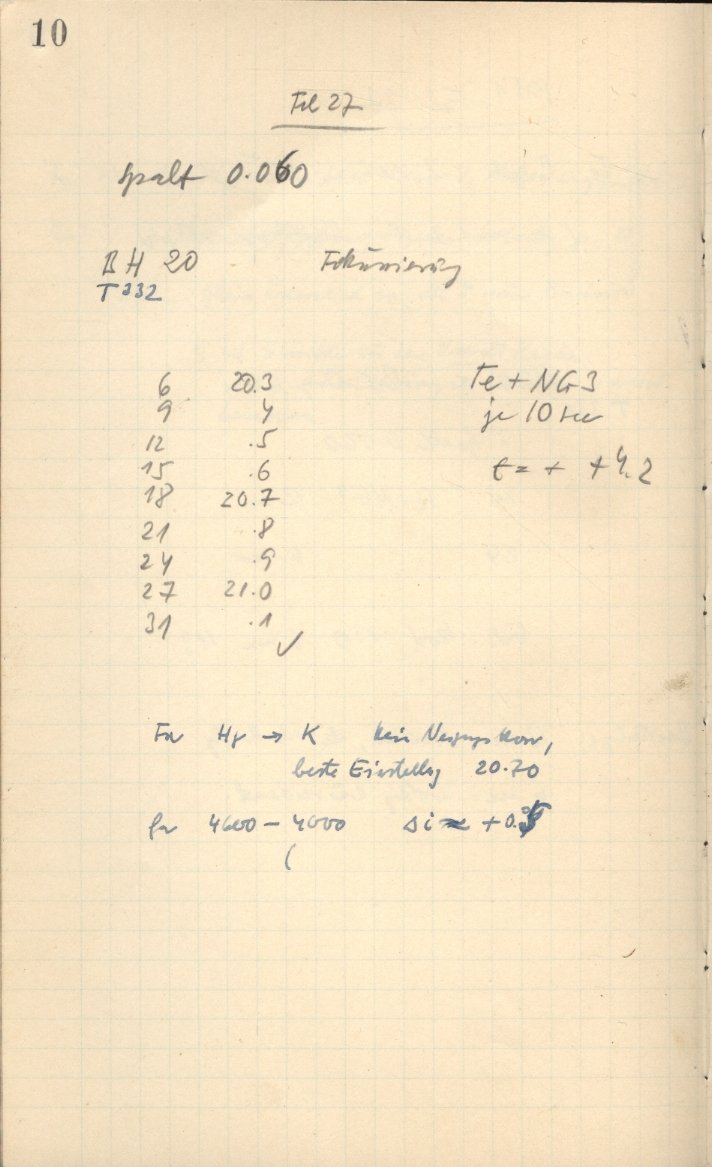 10
Feb 27
Spalt 0.060
B H 20 Fokussierung
T 332
6 20.3 Fe + NG3
9 4 je 10 sec
12 .5
15 .6 t = + +4.2
18 20.7
21 .8
24 .9
27 21.0
31 .1
✓
Für Hγ → K kein Neigungskorr,
beste Einstellg 20.70
für 4600 – 4000 Δi = +0.
(